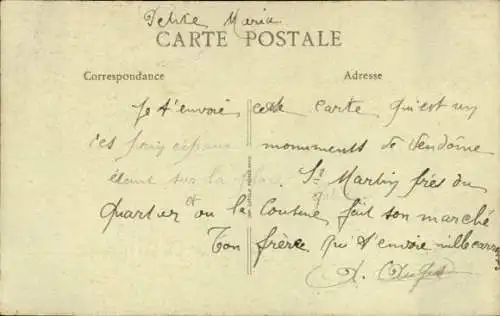 Petite Maria
CARTE POSTALE
Correspondance
Adresse
Je t'envoie cette carte qu'est un
des monuments de Vendôme
étant sur la place St Martin près du
quartier et ou la fait son marché
Ton frère qui t'envoie mille